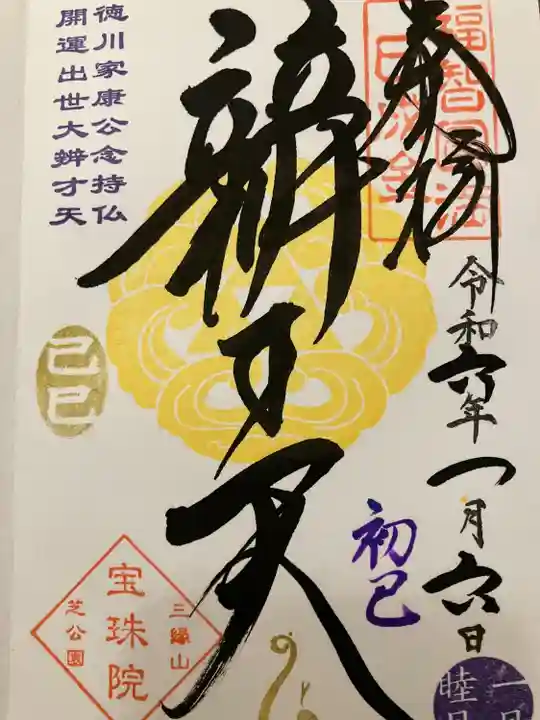 奉拝
福智円満
令和六年一月六日
初巳
辨才天
徳川家康公念持仏
開運出世大辨才天
己巳
三縁山
宝珠院
芝公園
睦月